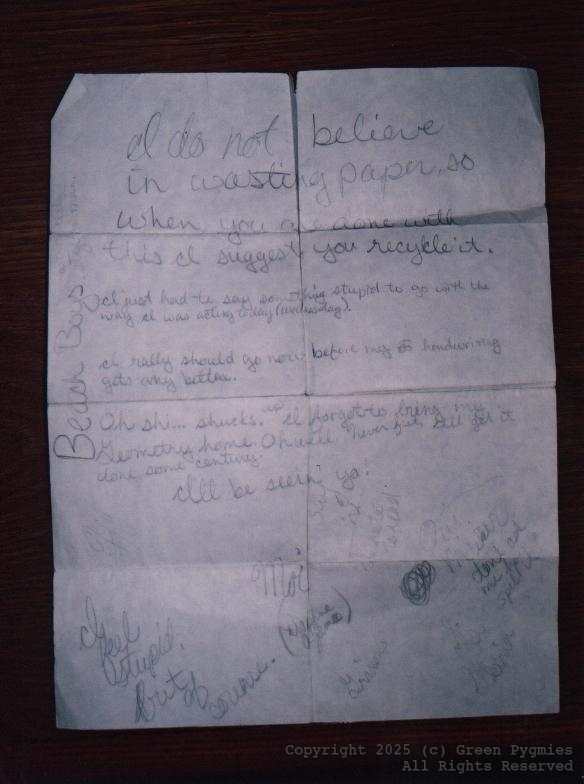 I do not believe
in wasting paper, so
when you are done with
this I suggest you recycle it.
I just had to say something stupid to go with the
way I was acting today (Wednesday).
I rally should go now before my handwriting
gets any better.
Oh shi... shucks. I forgot to bring my
Geometry home. Oh well. Never fear I'll get it
done some century.
I'll be seein' ya!
Moi
I feel
stupid.
But of
course.
Beach Boys
Copyright 2025 (c) Green Pygmies
All Rights Reserved